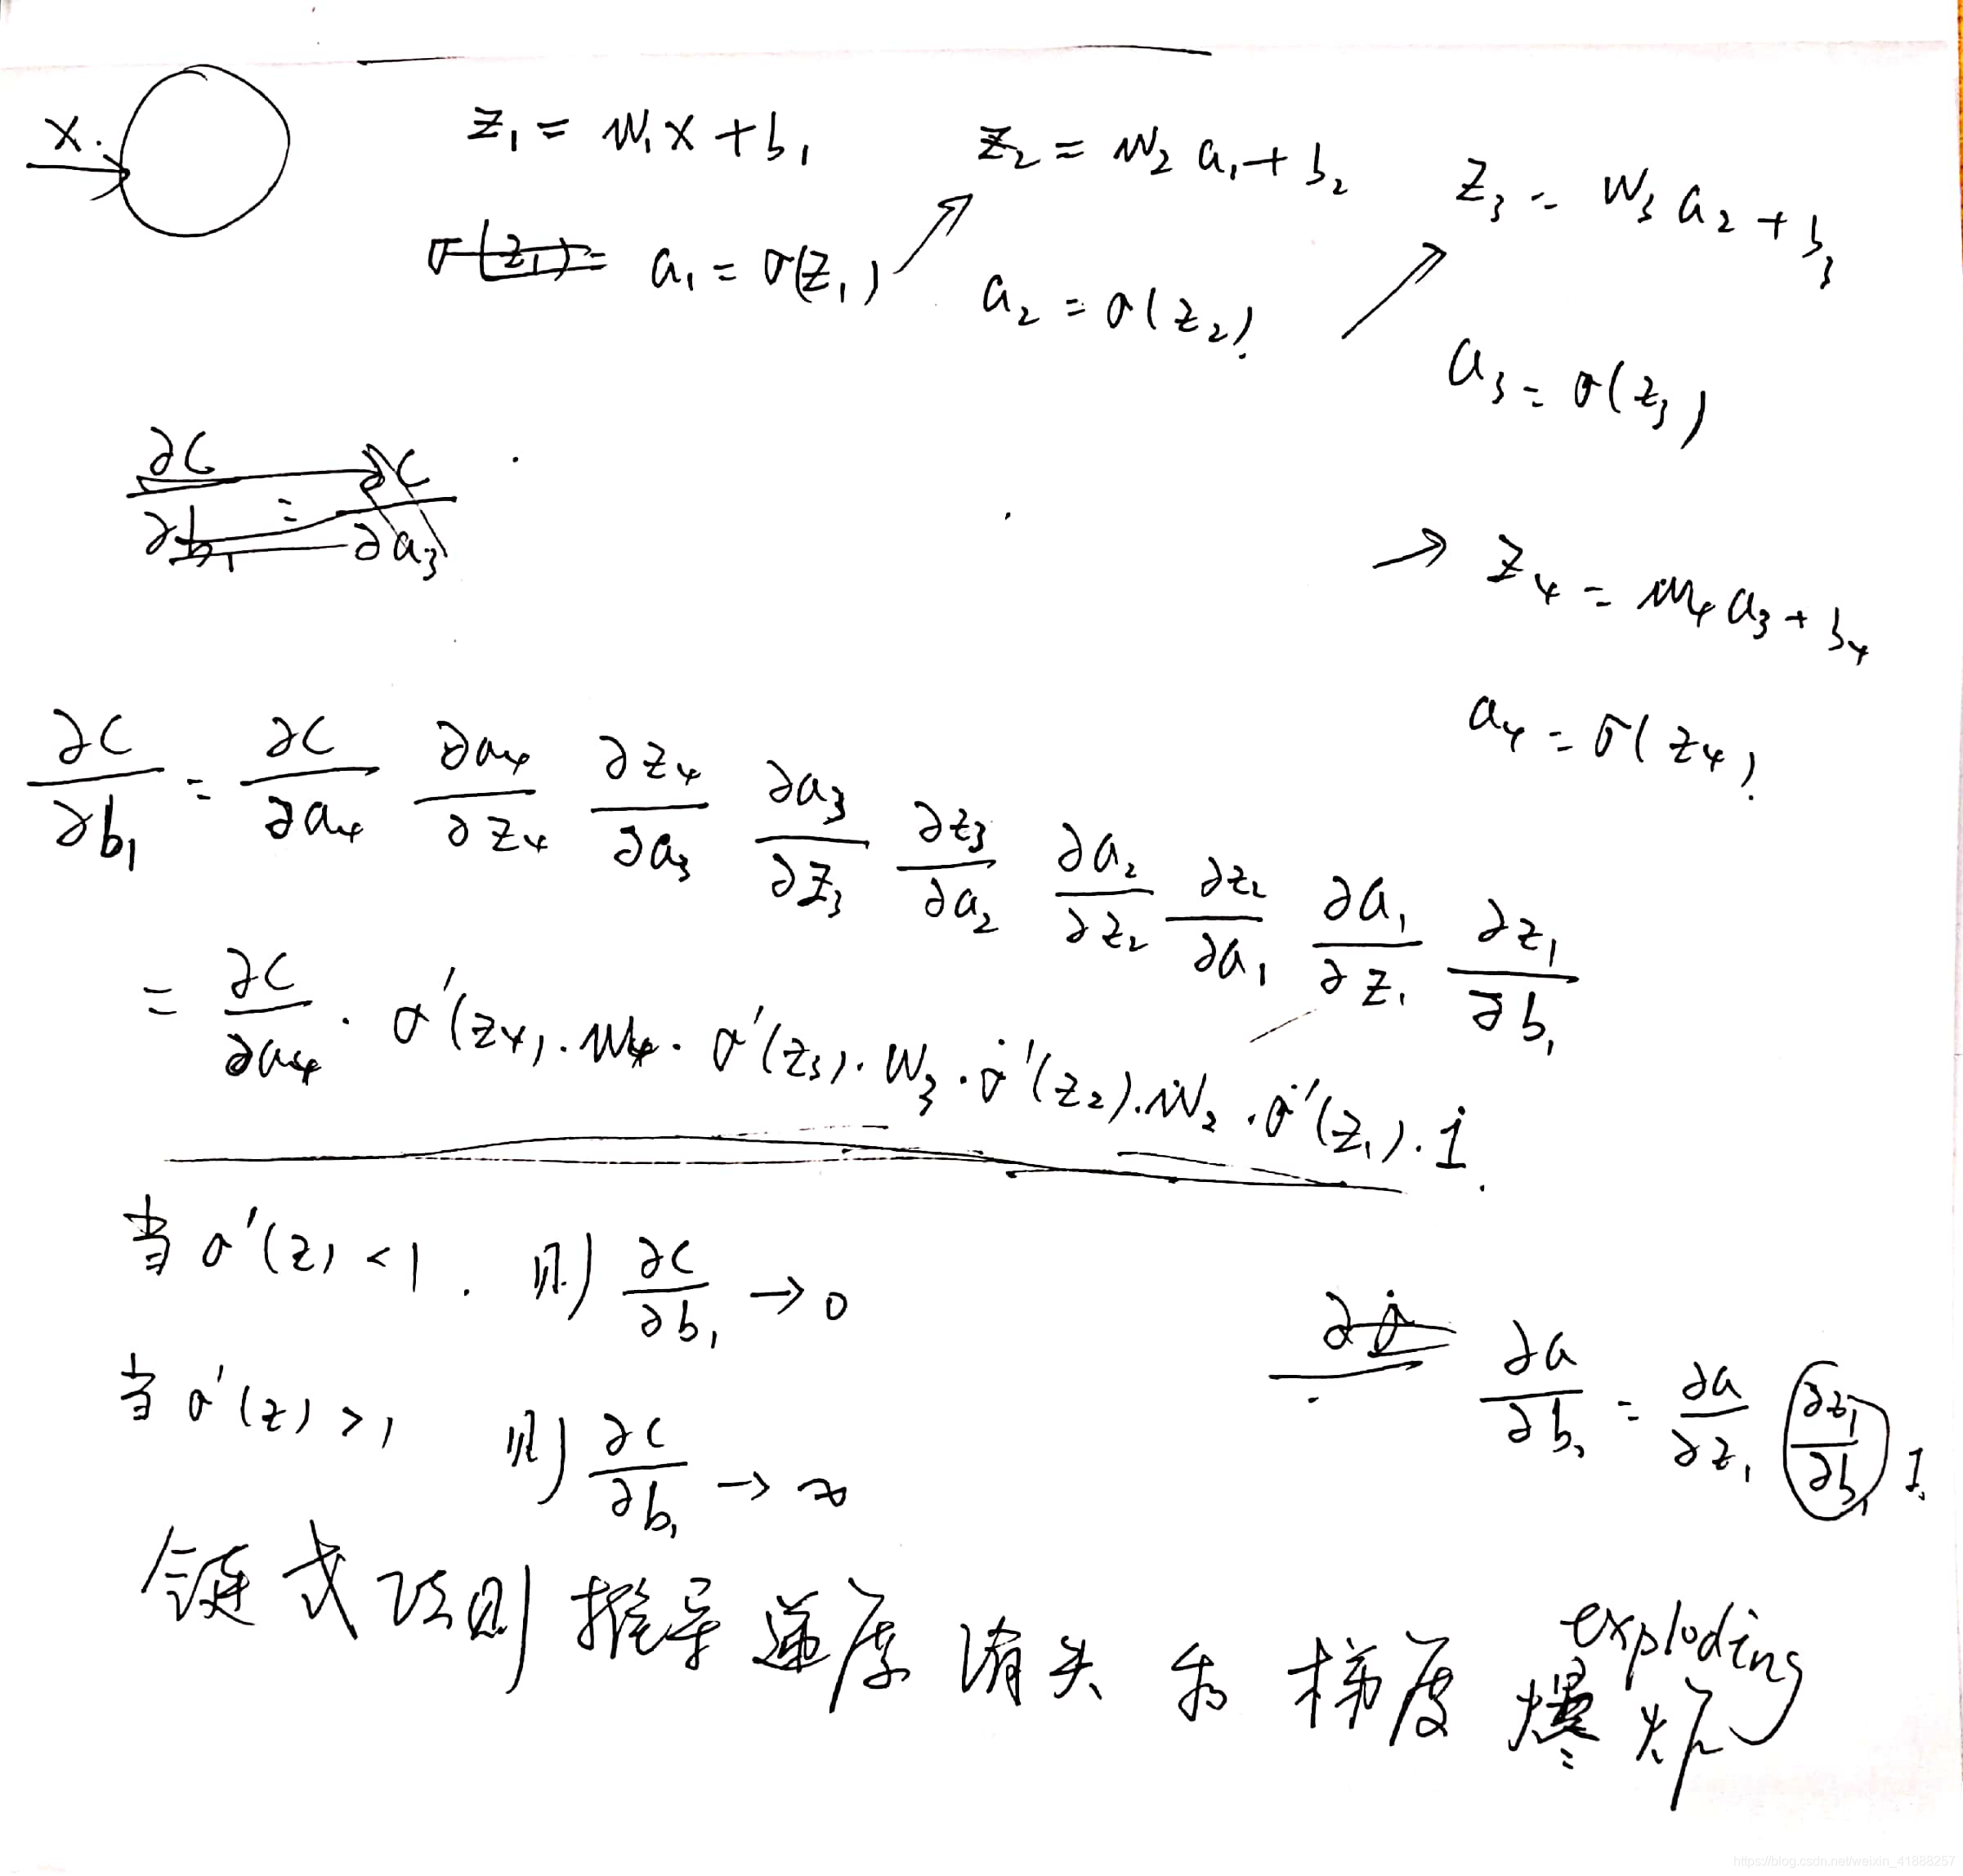 x.
z₁ = w₁x + b₁
z₂ = w₂ a₁ + b₂
z₃ = w₃ a₂ + b₃
σ(z₁) = a₁ = σ(z₁)
a₂ = σ(z₂)
a₃ = σ(z₃)
∂C/∂b₁ = ∂C/∂a₃
→ z₄ = w₄ a₃ + b₄
a₄ = σ(z₄)
∂C/∂b₁ = ∂C/∂a₄ ∂a₄/∂z₄ ∂z₄/∂a₃ ∂a₃/∂z₃ ∂z₃/∂a₂ ∂a₂/∂z₂ ∂z₂/∂a₁ ∂a₁/∂z₁ ∂z₁/∂b₁
= ∂C/∂a₄ · σ′(z₄) · w₄ · σ′(z₃) · w₃ · σ′(z₂) · w₂ · σ′(z₁) · 1
当 σ′(z) < 1 . 则 ∂C/∂b₁ → 0
当 σ′(z) > 1 则 ∂C/∂b₁ → ∞
∂a/∂b₁ = ∂a/∂z₁ ∂z₁/∂b₁ 1
链式法则推导递度消失和梯度爆炸
exploding
https://blog.csdn.net/weixin_41888257